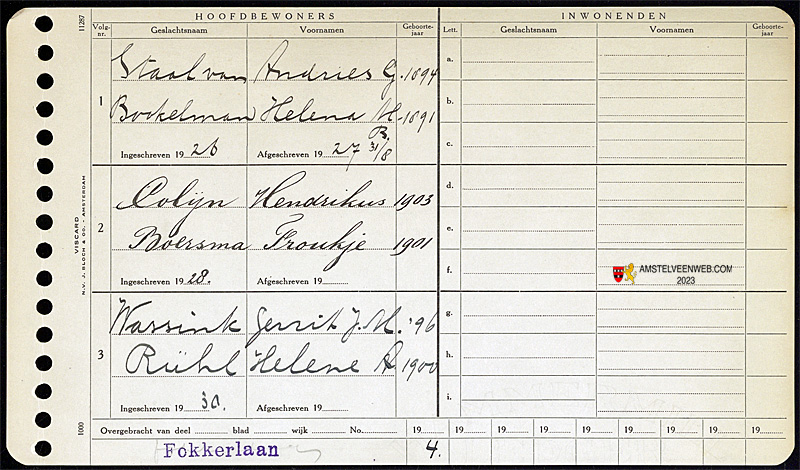 HOOFDBEWONERS INWONENDEN
Volg-nr. Geslachtsnaam Voornamen Geboorte-jaar Lett. Geslachtsnaam Voornamen Geboorte-jaar
1
Staal van Andries G. 1894
Bockelman Helena M. 1891
B.
Ingeschreven 19 26 Afgeschreven 19 27 31/8
2
Colijn Hendrikus 1903
Boersma Froukje 1901
Ingeschreven 19 28. Afgeschreven 19
3
Wassink Gerrit J. H. '96
Rühl Helene A 1900
Ingeschreven 19 30. Afgeschreven 19
a.
b.
c.
d.
e.
f.
g.
h.
i.
Overgebracht van deel blad wijk No. 19 19 19 19 19 19 19 19 19
Fokkerlaan 4.
11287
VISCARD
N.V. J. BLOCH & CO., AMSTERDAM
1000
AMSTELVEENWEB.COM
2023